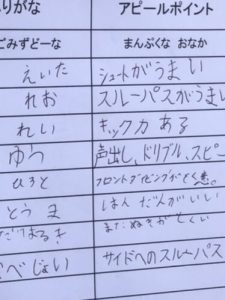 りがな アピールポイント
ごみずどーな まんぷくな おなか
えいた シュートがうまい
れお スルーパスがうまい
れい キック力 ある
ゆう 声出し、ドリブル、スピー
ひろと
とうま はんだんがいい
だてはるき またぬきがとくい
べじょい サイドへのスルーパス